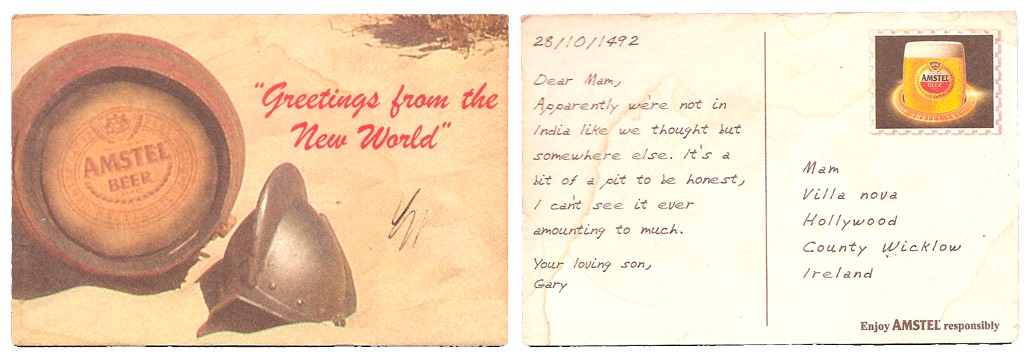 AMSTEL
BEER
"Greetings from the
New World"
28/10/1492
Dear Mam,
Apparently we're not in
India like we thought but
somewhere else. It's a
bit of a pit to be honest,
I can't see it ever
amounting to much.
Your loving son,
Gary
AMSTEL
BEER
Mam
Villa nova
Hollywood
County Wicklow
Ireland
Enjoy AMSTEL responsibly